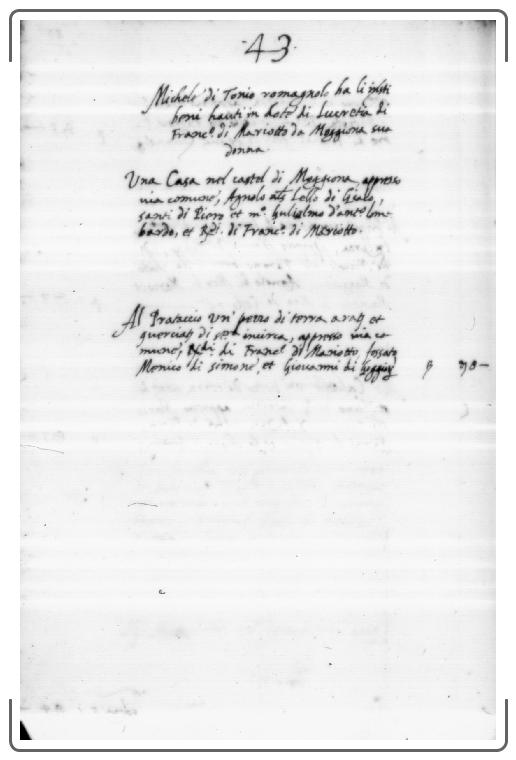 43
Michele di Tonio romagnolo ha li infrti
beni hauti in dote di Lucretia di
Franc.º di Mariotto da Moggiona sua
donna.
Una Casa nel castel di Moggiona, appresso
via comune, Agnolo als Lello di Giaco,
santi di Piero et m.º Gulielmo d'ant.º lom-
bardo, et Rdi. di Franc.º di Mariotto.
Al Prataccio Un' pezzo di terra a et
di incirca, appresso via co-
mune, Rdi. di Franc.º di Mariotto, fossato,
Menico di simone, et Giovanni di